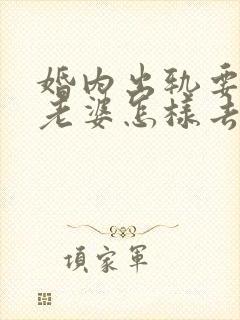 婚内出轨要
老婆怎样去
項家軍